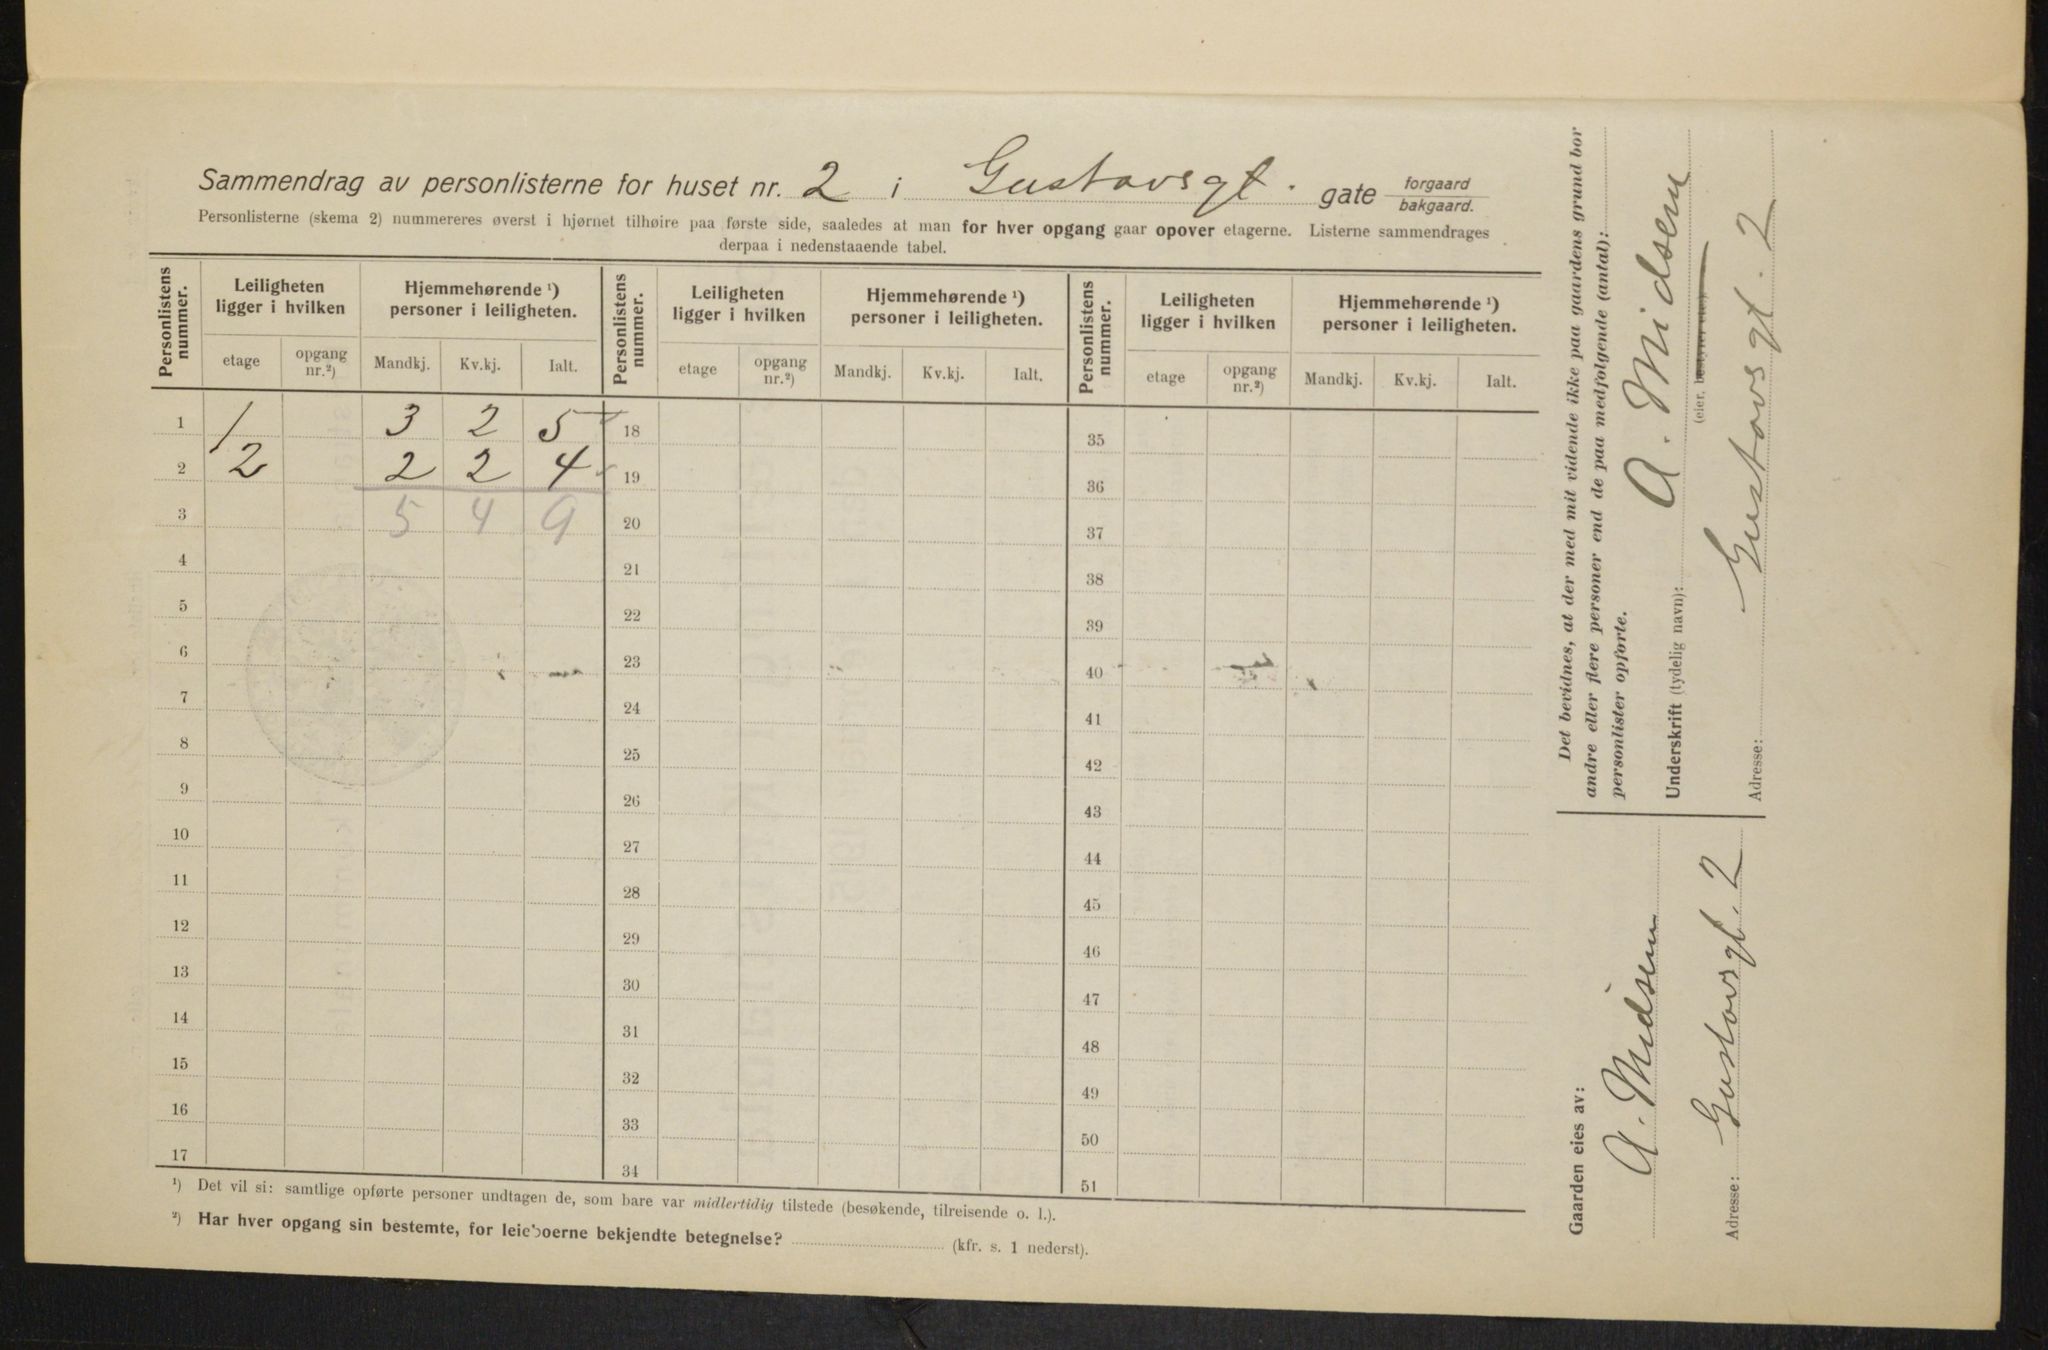 Sammendrag av personlisterne for huset nr. 2 i Gustavsgt. gate forgaard
bakgaard.
Personlisterne (skema 2) nummereres øverst i hjørnet tilhøire paa første side, saaledes at man for hver opgang gaar opover etagerne. Listerne sammendrages
derpaa i nedenstaaende tabel.
Personlistens nummer. Leiligheten ligger i hvilken Hjemmehørende ¹) personer i leiligheten. Personlistens nummer. Leiligheten ligger i hvilken Hjemmehørende ¹) personer i leiligheten. Personlistens nummer. Leiligheten ligger i hvilken Hjemmehørende ¹) personer i leiligheten.
etage opgang nr.²) Mandkj. Kv.kj. Ialt. etage opgang nr.²) Mandkj. Kv.kj. Ialt. etage opgang nr.²) Mandkj. Kv.kj. Ialt.
1 1 3 2 5 18 35
2 2 2 2 4 19 36
3 5 4 9 20 37
4 21 38
5 22 39
6 23 40
7 24 41
8 25 42
9 26 43
10 27 44
11 28 45
12 29 46
13 30 47
14 31 48
15 32 49
16 33 50
17 34 51
¹) Det vil si: samtlige opførte personer undtagen de, som bare var midlertidig tilstede (besøkende, tilreisende o. l.).
²) Har hver opgang sin bestemte, for leieboerne bekjendte betegnelse? (kfr. s. 1 nederst).
Det bevidnes, at der med mit vidende ikke paa gaardens grund bor
andre eller flere personer end de paa medfølgende (antal):
personlister opførte.
Underskrift (tydelig navn): A. Midsem
(eier, bestyrer etc.)
Adresse: Gustavsgt. 2
Gaarden eies av:
A. Midsem
Adresse: Gustavsgt. 2